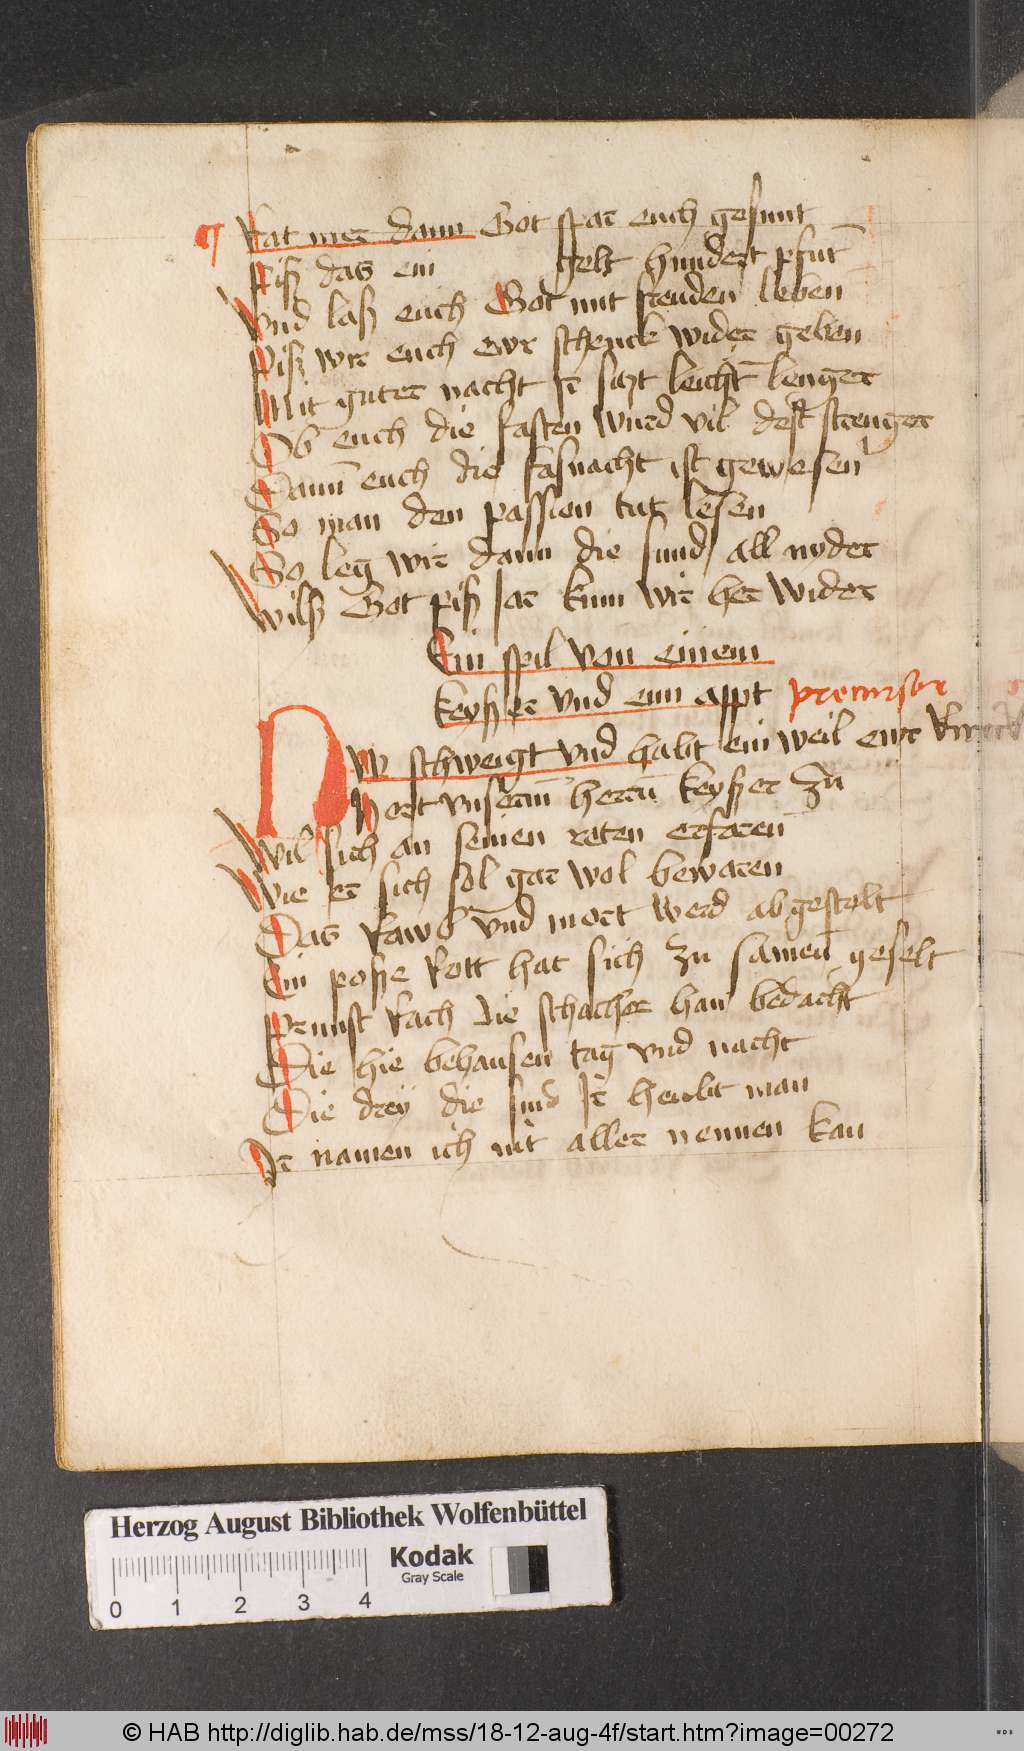 Rat mer dann Got spar euch gesunt
Piß das ein gelt hundert pfunt
Vnd laß euch Got mit freuden leben
Piß wir euch ewr schenck wider geben
Mit guter nacht Ir sitzt leicht lenger
Ob euch die fasten wurd vil dest strenger
Dann euch die fasnacht ist gewesen
So man den passion tut lesen
So leg wir dann die sund all nyder
Wils Got piß Jar kum wir her wider
Ein spil von einem
keyßer vnd eim appt precursor
NW schweigt vnd habt ein weil ewr
Hort vnserm herrn keyßer zu
Wil sich an seinen reten erfaren
Wie er sich sol gar wol bewaren
Das Rawb vnd mort werd abgestelt
Ein poße Rott hat sich zu samen geselt
Prunst Rach die schacher han bedacht
Die hie behausen tag vnd nacht
Die drey die sind Ir heubt man
Ir namen ich nit aller nennen kan
Herzog August Bibliothek Wolfenbüttel
Kodak
Gray Scale
0 1 2 3 4
© HAB http://diglib.hab.de/mss/18-12-aug-4f/start.htm?image=00272